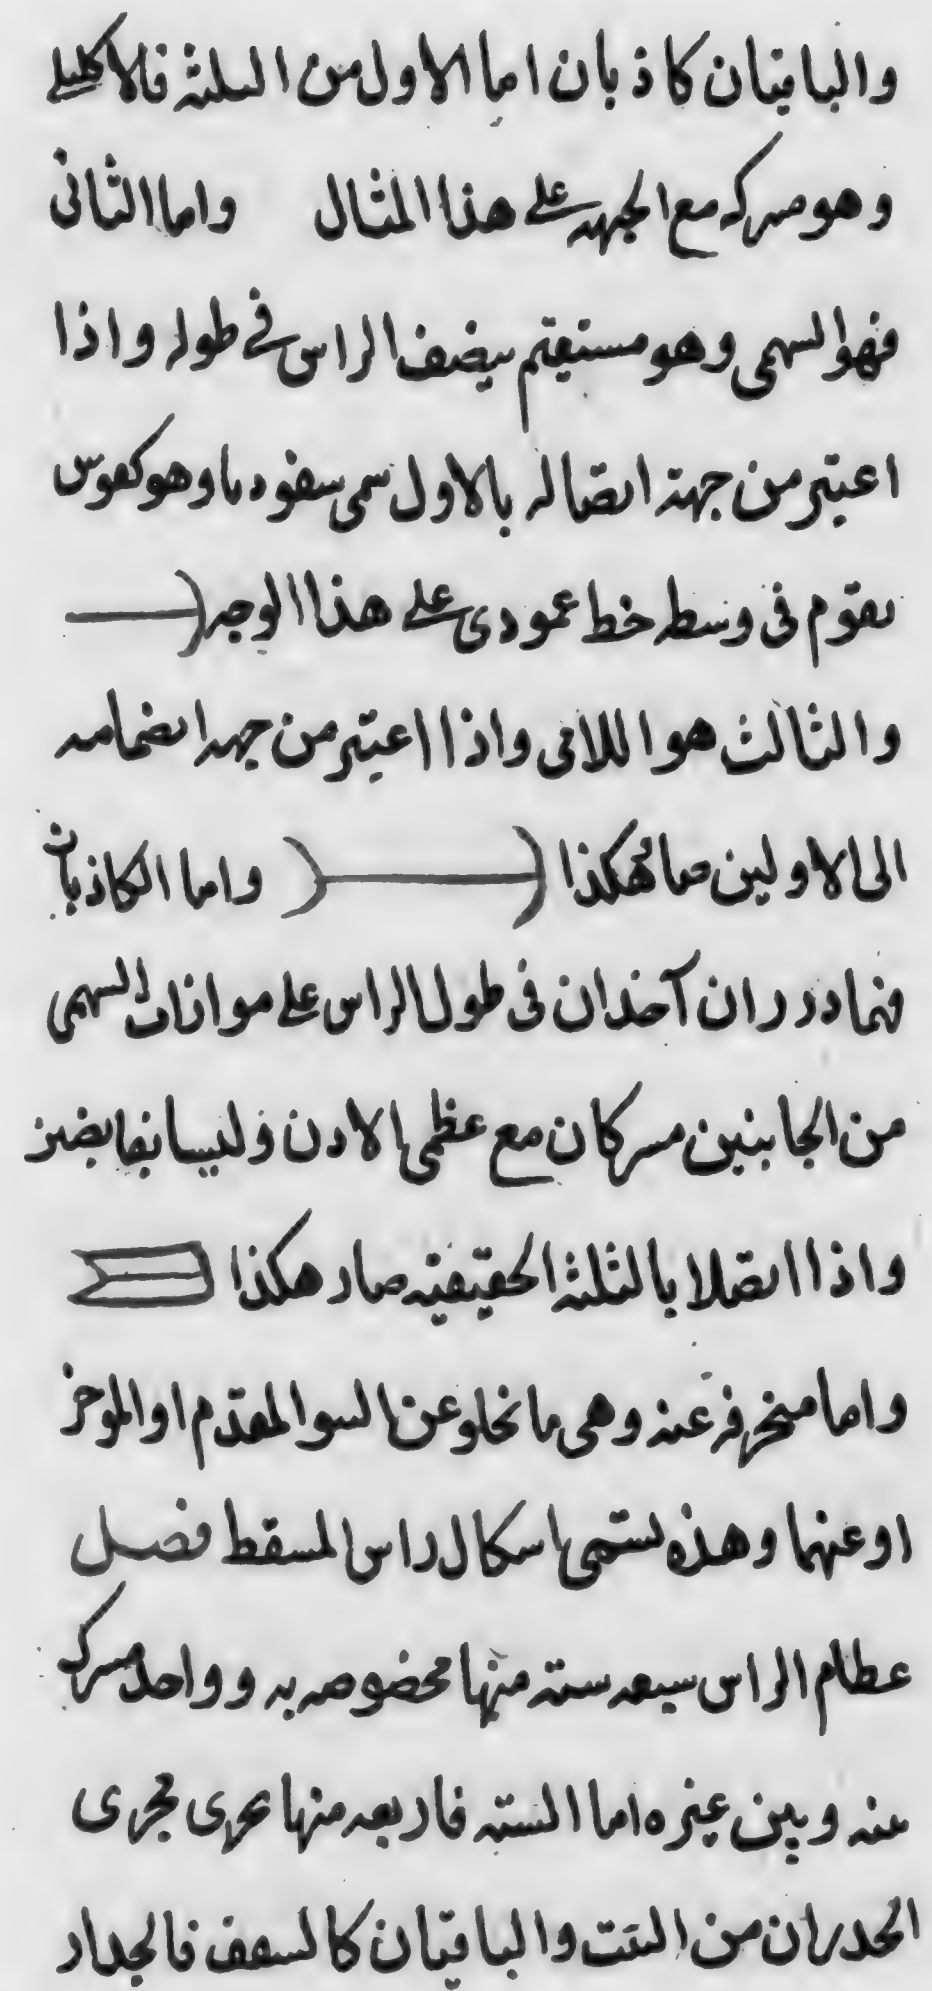 والباقيان كاذبان اما الاول من الثلثة فالاكليلي
وهو مشركه مع الجبهه على هذا المثال واما الثانى
فهو السهمى وهو مستقيم ينصف الراس فى طوله واذا
اعتبر من جهة اتصاله بالاول سمى سفوديا وهو كقوس
يقوم فى وسطه خط عمودى على هذا الوجه
والثالث هو اللامى واذا اعتبر من جهه انضمامه
الى الاولين صار هكذا واما الكاذبان
فهما درزان آخذان فى طول الراس على موازاة السهمى
من الجانبين مشركان مع عظمى الاذن وليسا بغايضين
واذا اتصلا بالثلثة الحقيقيه صار هكذا
واما منحرفة عنه وهى ما تخلو عن النتو المقدم او الموخر
او عنهما وهذه تسمى اشكال راس المسقط فصل
عظام الراس سبعه ستة منها مخصوصه به وواحد مشرك
بينه وبين غيره اما السته فاربعه منها تجرى مجرى
الجدران من البيت والباقيان كالسقف فالجدار